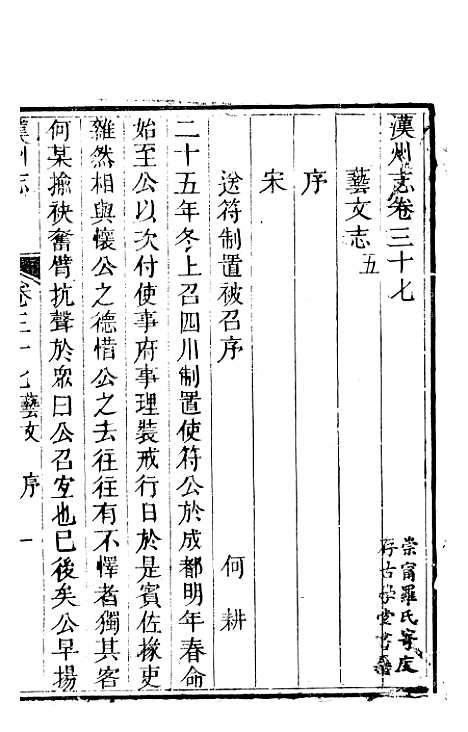 漢州志卷三十七
崇甯羅氏
存古學堂書
藝文志五
序
宋
送符制置被召序 何耕
二十五年冬上召四川制置使符公於成都明年春命
始至公以次付使事府事理裝戒行日於是賓佐掾吏
雜然相與懷公之德惜公之去往往有不懌者獨其客
何某揄袂奮臂抗聲於衆曰公召宜也已後矣公早揚
漢州志 卷三十七藝文 序 一